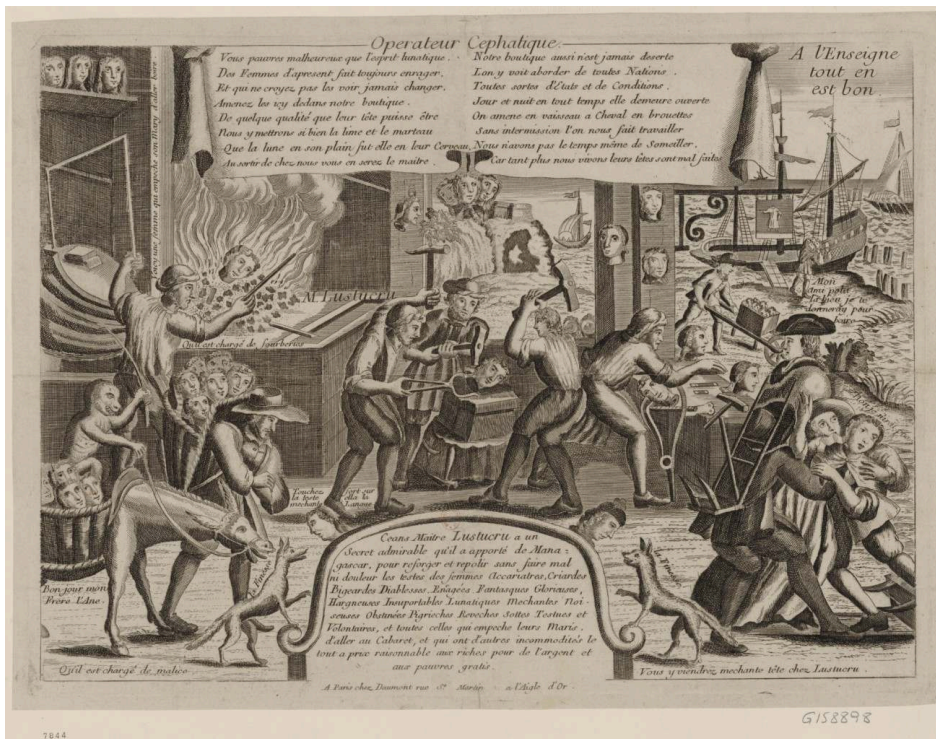 Operateur Cephalique.
Vous pauvres malheureux que l'esprit lunatique.
Des Femmes d'apresent fait toujours enrager,
Et qui ne croyez pas les voir jamais changer,
Amenez les icy dedans notre boutique.
De quelque qualité que leur tête puisse être
Nous y mettrons si bien la lime et le marteau
Que la lune en son plain fut elle en leur Cerveau,
Au sortir de chez nous vous en serez le maitre.
Notre boutique aussi n'est jamais deserte
L'on y voit aborder de toutes Nations.
Toutes sortes d'Etats et de Conditions.
Jour et nuit en tout temps elle demeure ouverte
On amene en vaisseau a Cheval en brouettes
Sans intermission l'on nous fait travailler
Nous n'avons pas le temps même de Someiller,
Car tant plus nous vivons leurs têtes sont mal faites
A l'Enseigne
tout en
est bon
femme qui empeche son Mary d'aller boire
M. Lustucru
Qu'il est chargé de fourberies
Mon
ami polit
la bien je te
donneray pour
boire
Touchez fort sur
la teste ella la
mechante Langue
Bon jour mon
Frere l'Ane.
Qu'il est chargé de malice
Ceans Maitre Lustucru a un
Secret admirable qu'il a apporté de Mada=
gascar, pour reforger et repolir sans faire mal
ni douleur les testes des femmes Accariatres, Criardes
Bigeardes Diablesses, Enragées Fantasques Glorieuses,
Hargneuses Insuportables Lunatiques Mechantes Noi-
seuses Obstinées Pigrieches Reveches Sottes Testues et
Volontaires, et toutes celles qui empeche leurs Maris,
d'aller au Cabaret, et qui ont d'autres incommodités le
tout a prix raisonnable aux riches pour de l'argent et
aux pauvres gratis.
Vous y viendrez mechante tête chez Lustucru.
A Paris chez Daumont rue St. Martin a l'Aigle d'Or.
G158898
7844